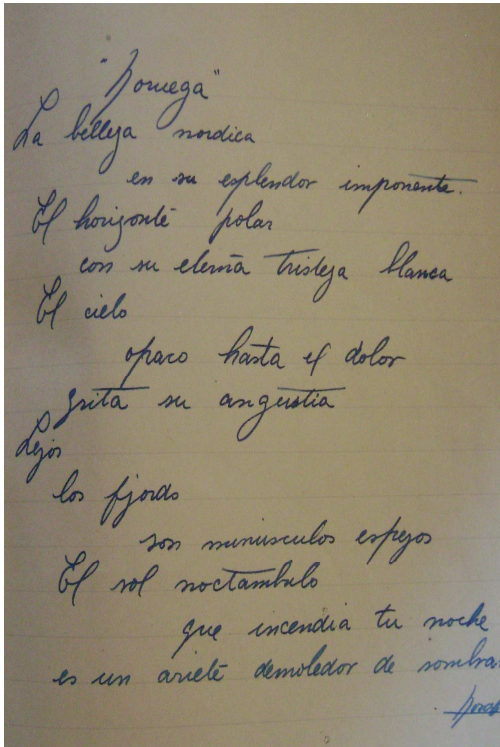 "Noruega"
La belleza nordica
en su esplendor imponente.
El horizonte polar
con su eterna tristeza blanca
El cielo
opaco hasta el dolor
grita su angustia
Lejos
los fjords
son minusculos espejos
El sol noctambulo
que incendia tu noche
es un ariete demoledor de sombras